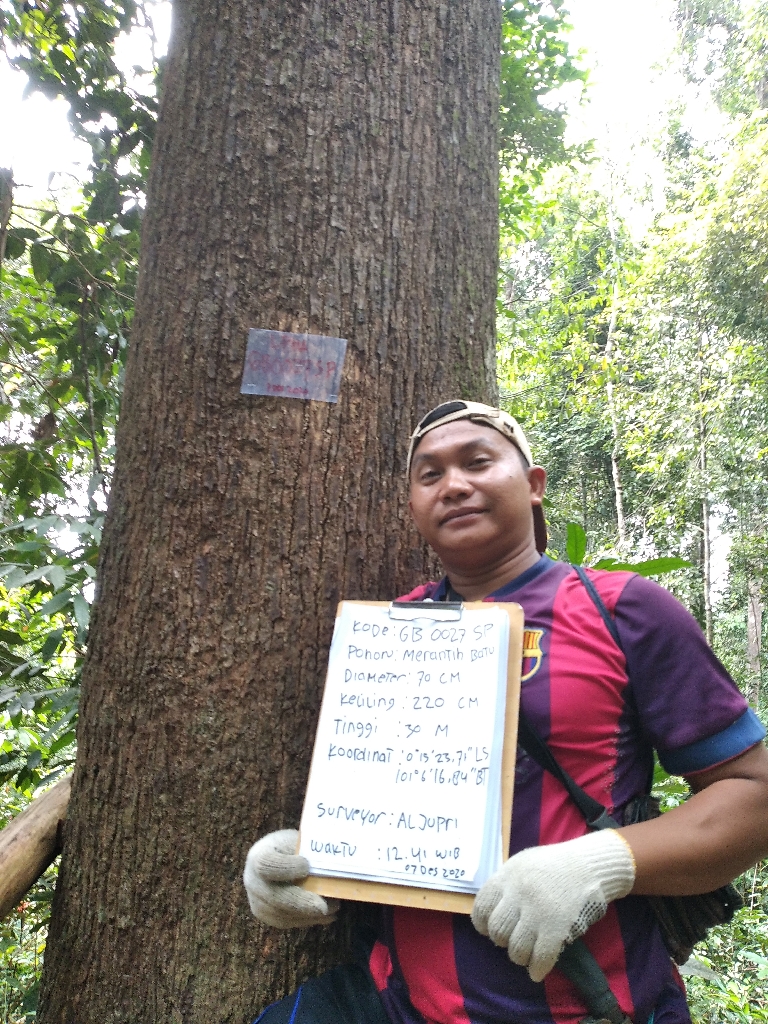 KODE : GB 0027 SP
POHON : MERANTIH BATU
DIAMETER : 70 CM
KELILING : 220 CM
TINGGI : 30 M
KOORDINAT : 0°15'23,71" LS
101°6'16,84" BT
SURVEYOR : ALJUPRI
WAKTU : 12.41 WIB
07 DES 2020